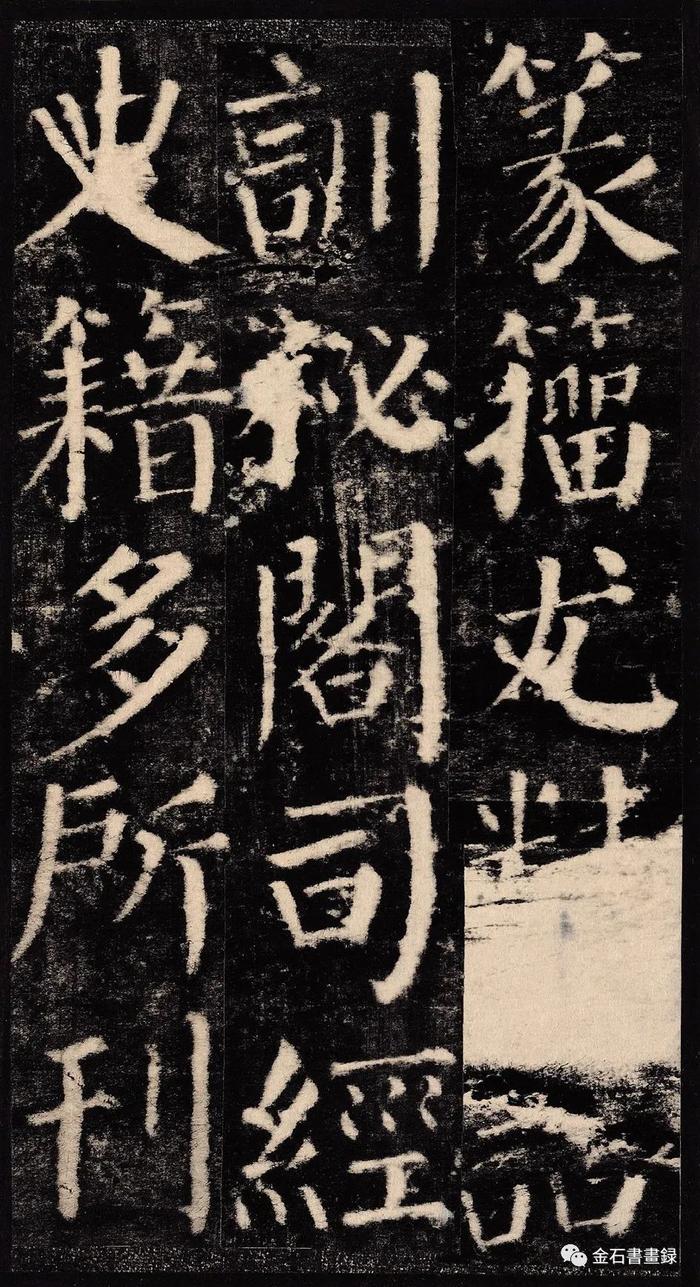 篆籀尤
訓祕閣司經
史籍多所刊
金石書畫録